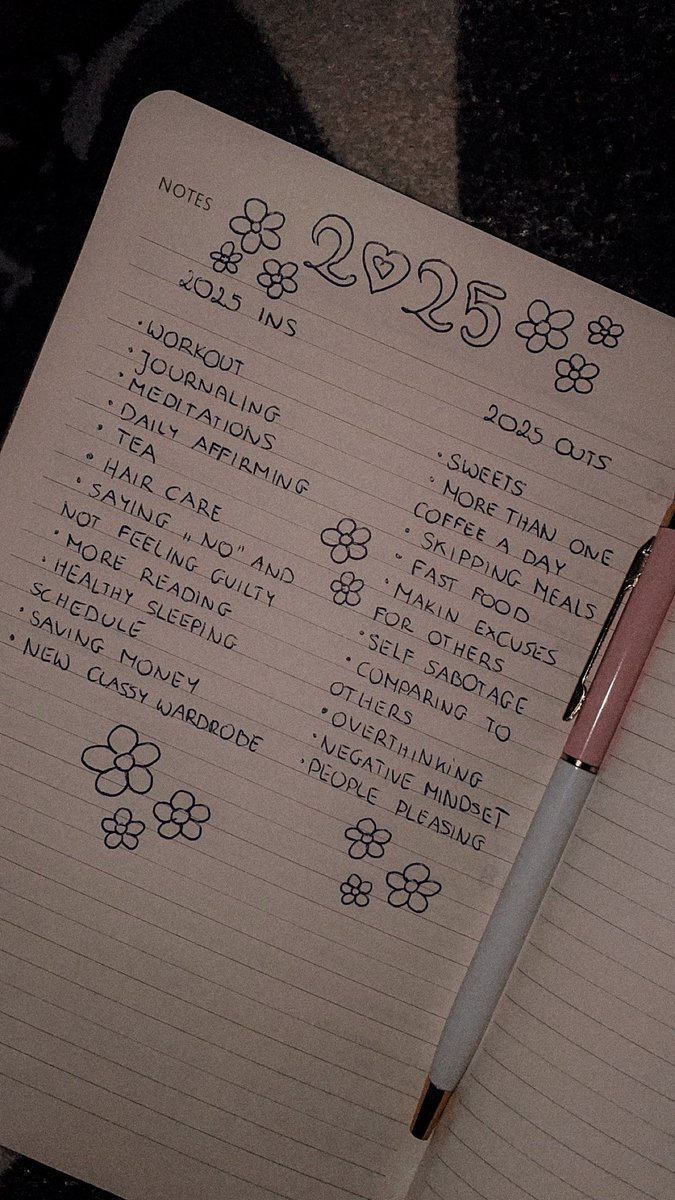 NOTES
2025
2025 INS
• WORKOUT
• JOURNALING
• MEDITATIONS
• DAILY AFFIRMING
• TEA
• HAIR CARE
• SAYING „NO" AND
NOT FEELING GUILTY
• MORE READING
• HEALTHY SLEEPING
SCHEDULE
• SAVING MONEY
• NEW CLASSY WARDROBE
2025 OUTS
• SWEETS
• MORE THAN ONE
COFFEE A DAY
• SKIPPING MEALS
• FAST FOOD
• MAKIN EXCUSES
FOR OTHERS
• SELF SABOTAGE
• COMPARING TO
OTHERS
• OVERTHINKING
• NEGATIVE MINDSET
• PEOPLE PLEASING